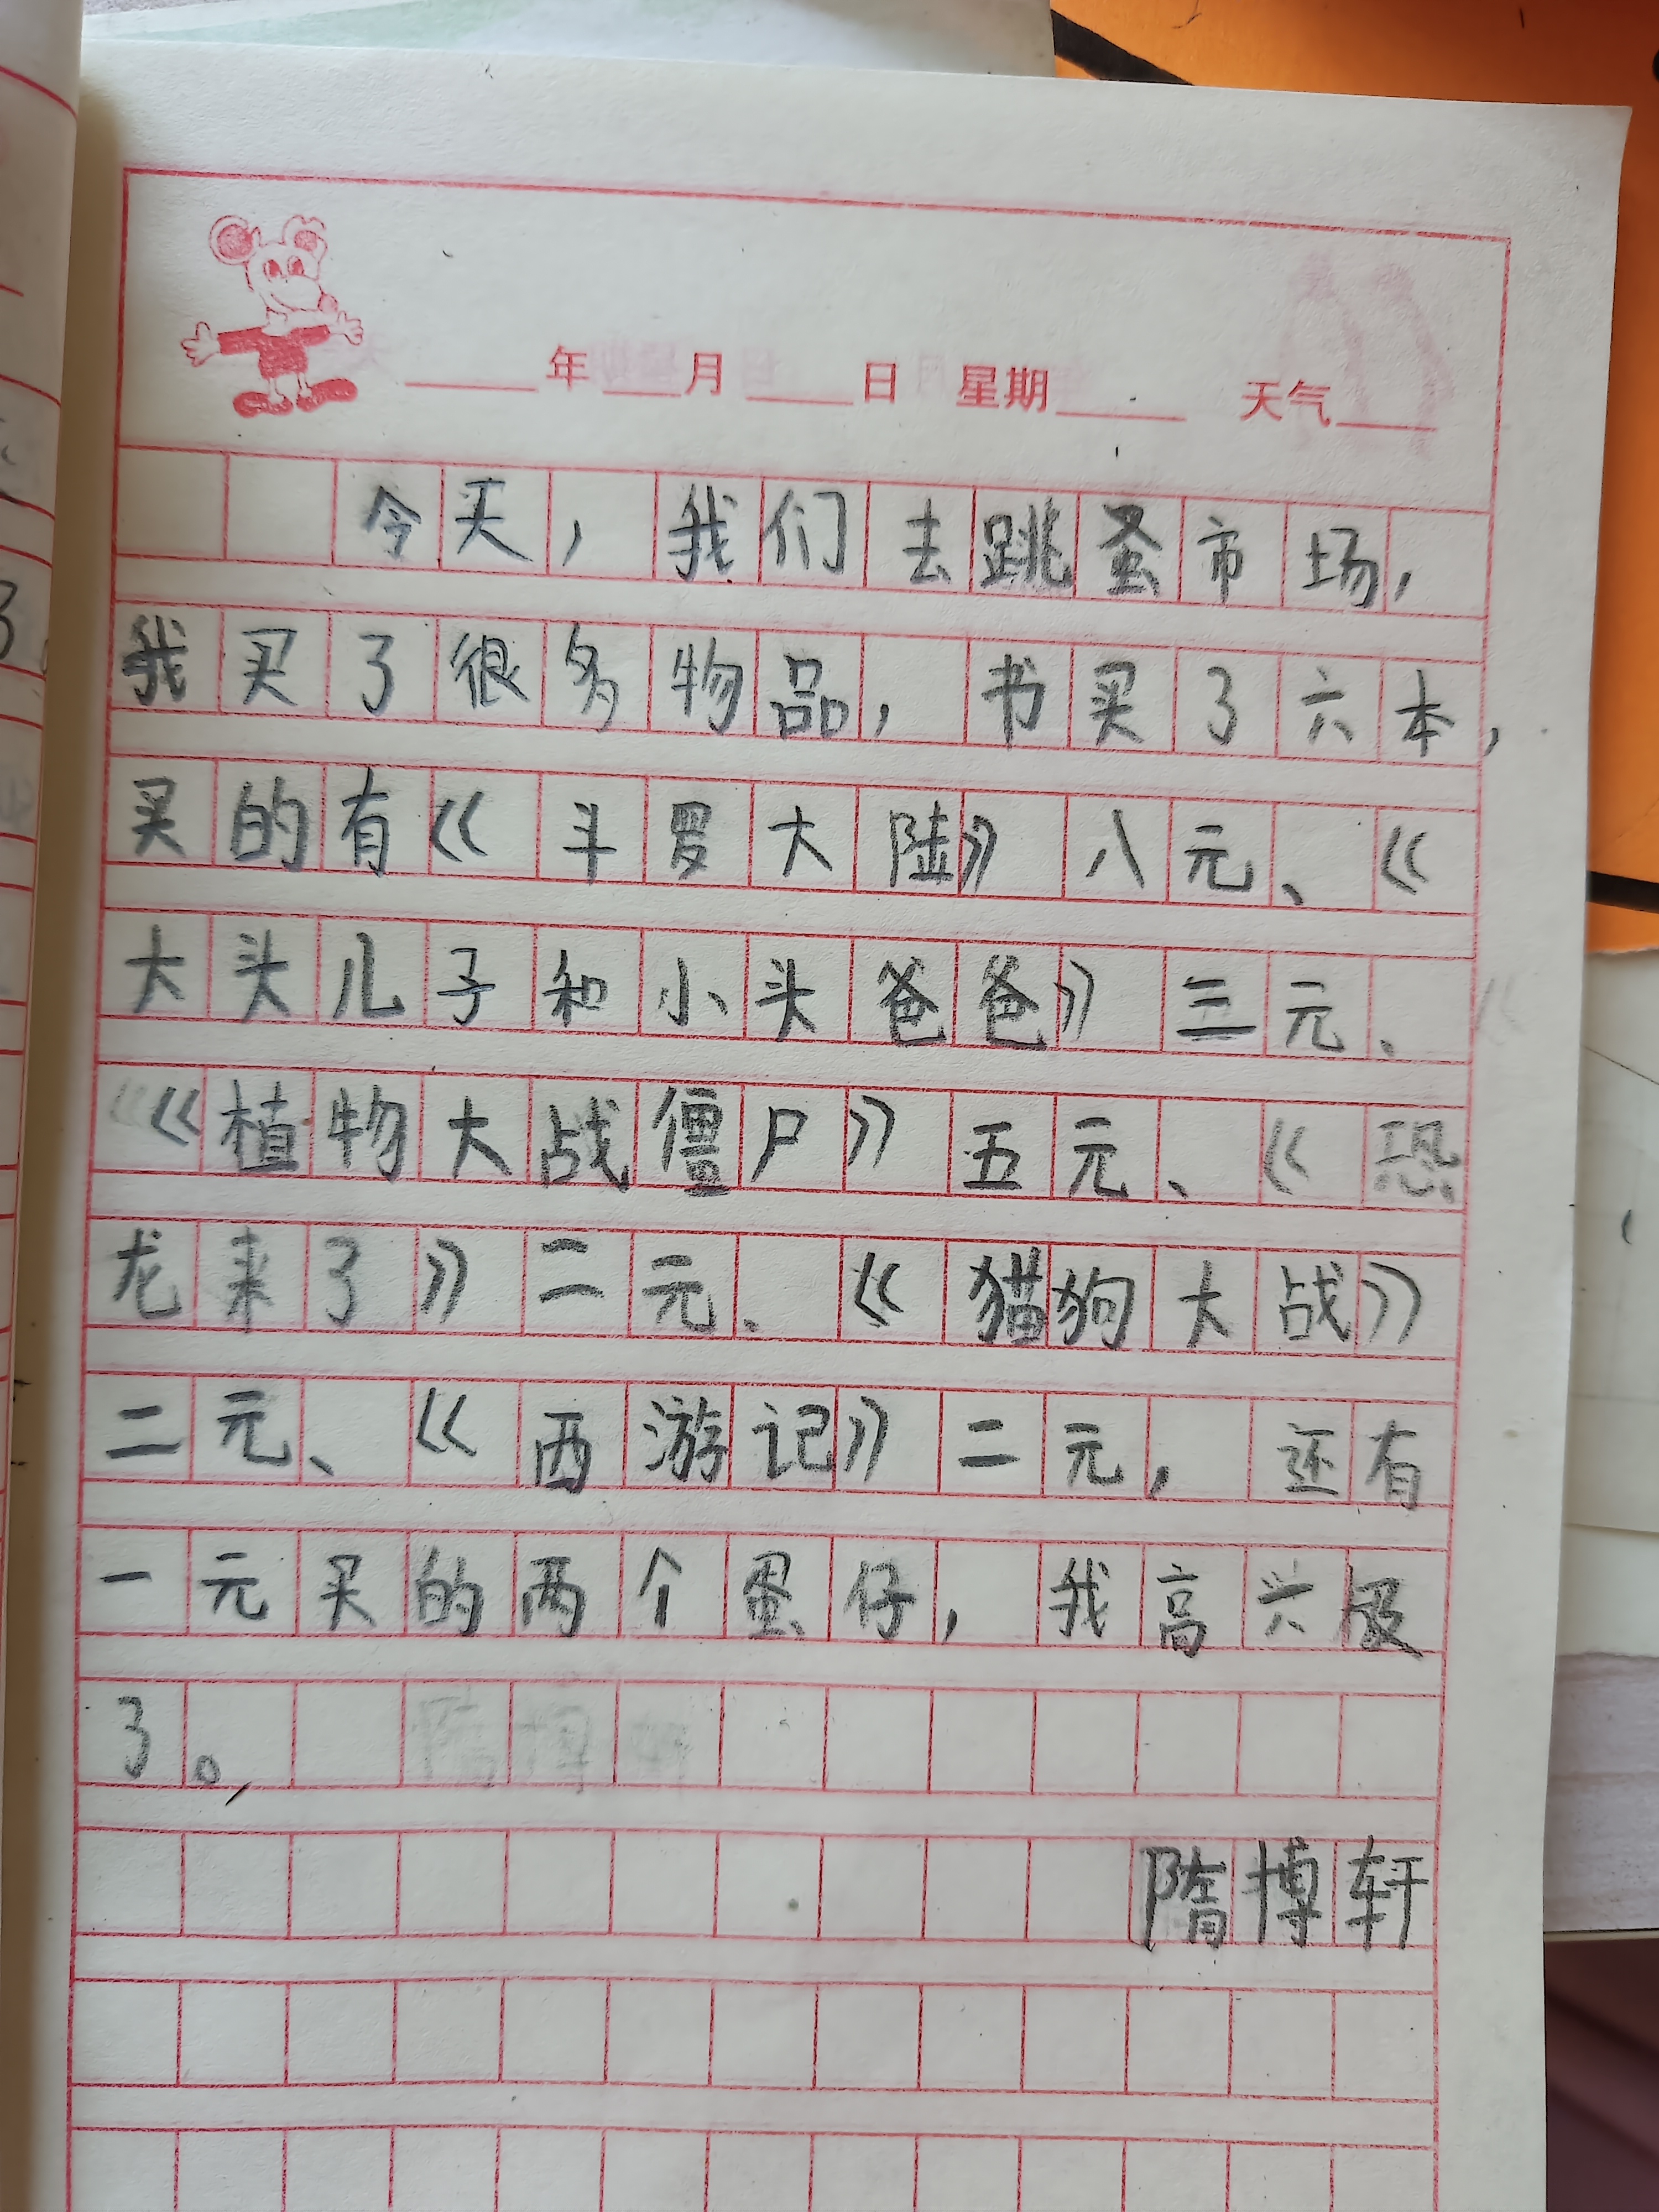 年 月 日 星期 天气
今买，我们去跳蚤市场，
我买了很多物品，书买了六本，
买的有《斗罗大陆》八元、《
大头儿子和小头爸爸》三元、
《植物大战僵尸》五元、《恐
龙来了》二元、《猫狗大战》
二元、《西游记》二元，还有
一元买的两个蛋仔，我高兴极
了。
隋博轩